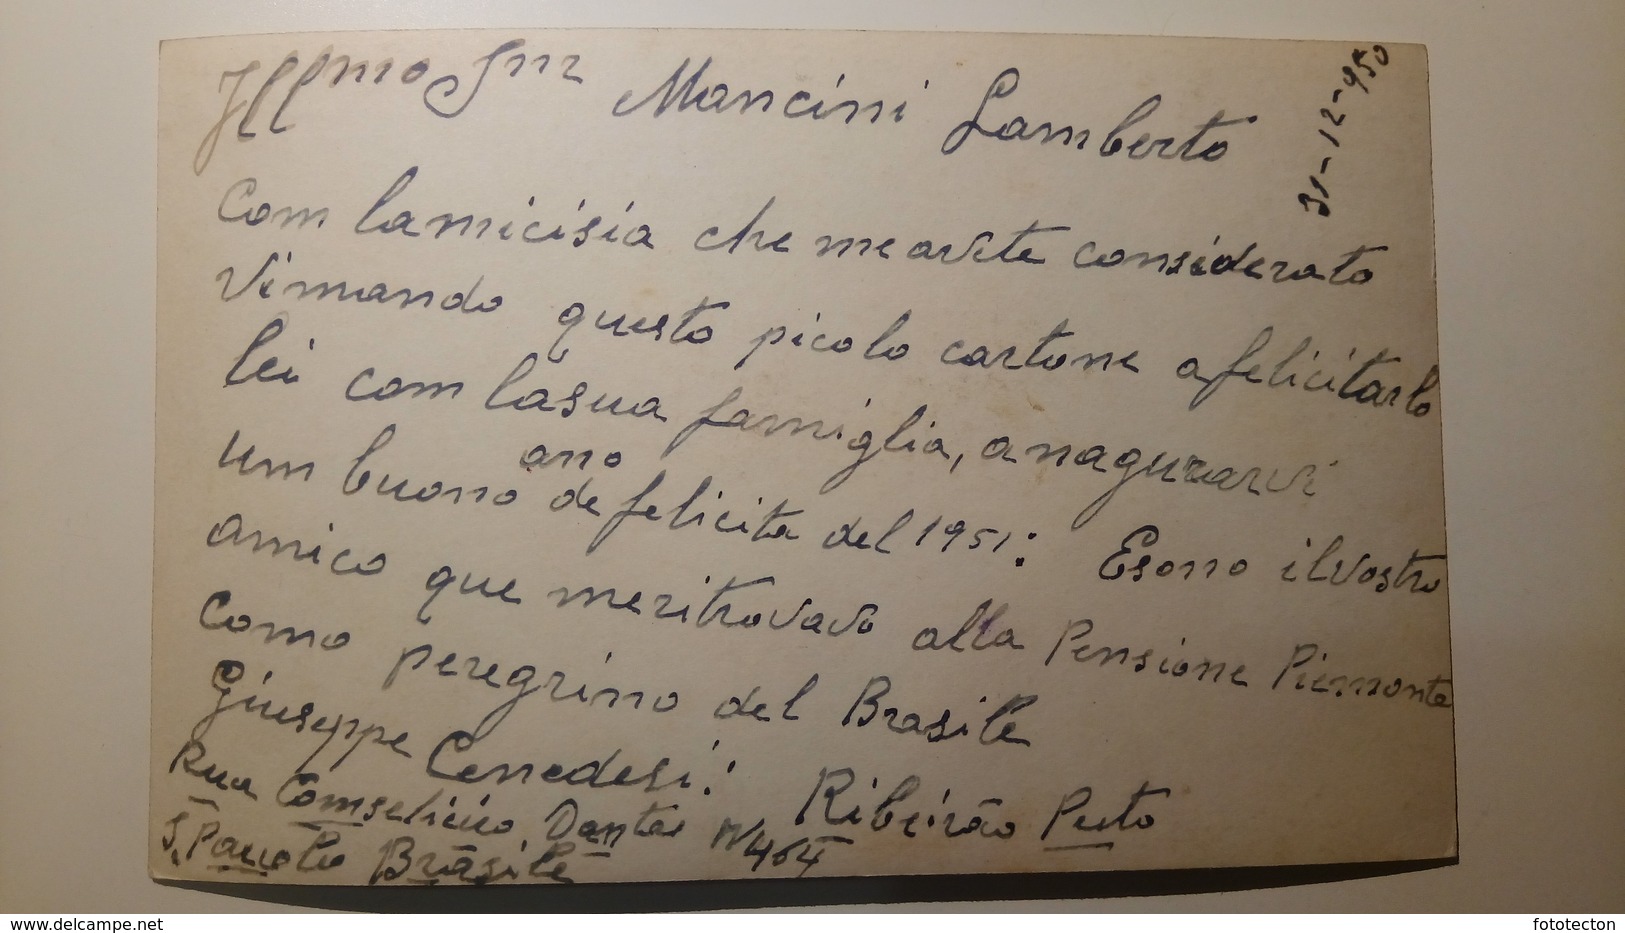 Illmo Snr Mancini Lamberto
31-12-950
Com lamicisia che meavete considerato
Vimando questo picolo cartone afelicitarlo
lei com lasua famiglia, anagurarvi
um buono ano de felicita del 1951: Esono ilvostro
amico que meritrovavo alla Pensione Piemonte
como peregrino del Brasile
Giuseppe Cenedesi: Ribeirão Preto
Rua Comselicio Dantas N 464
S. Pauolo Brasile
delcampe.net
fototecton